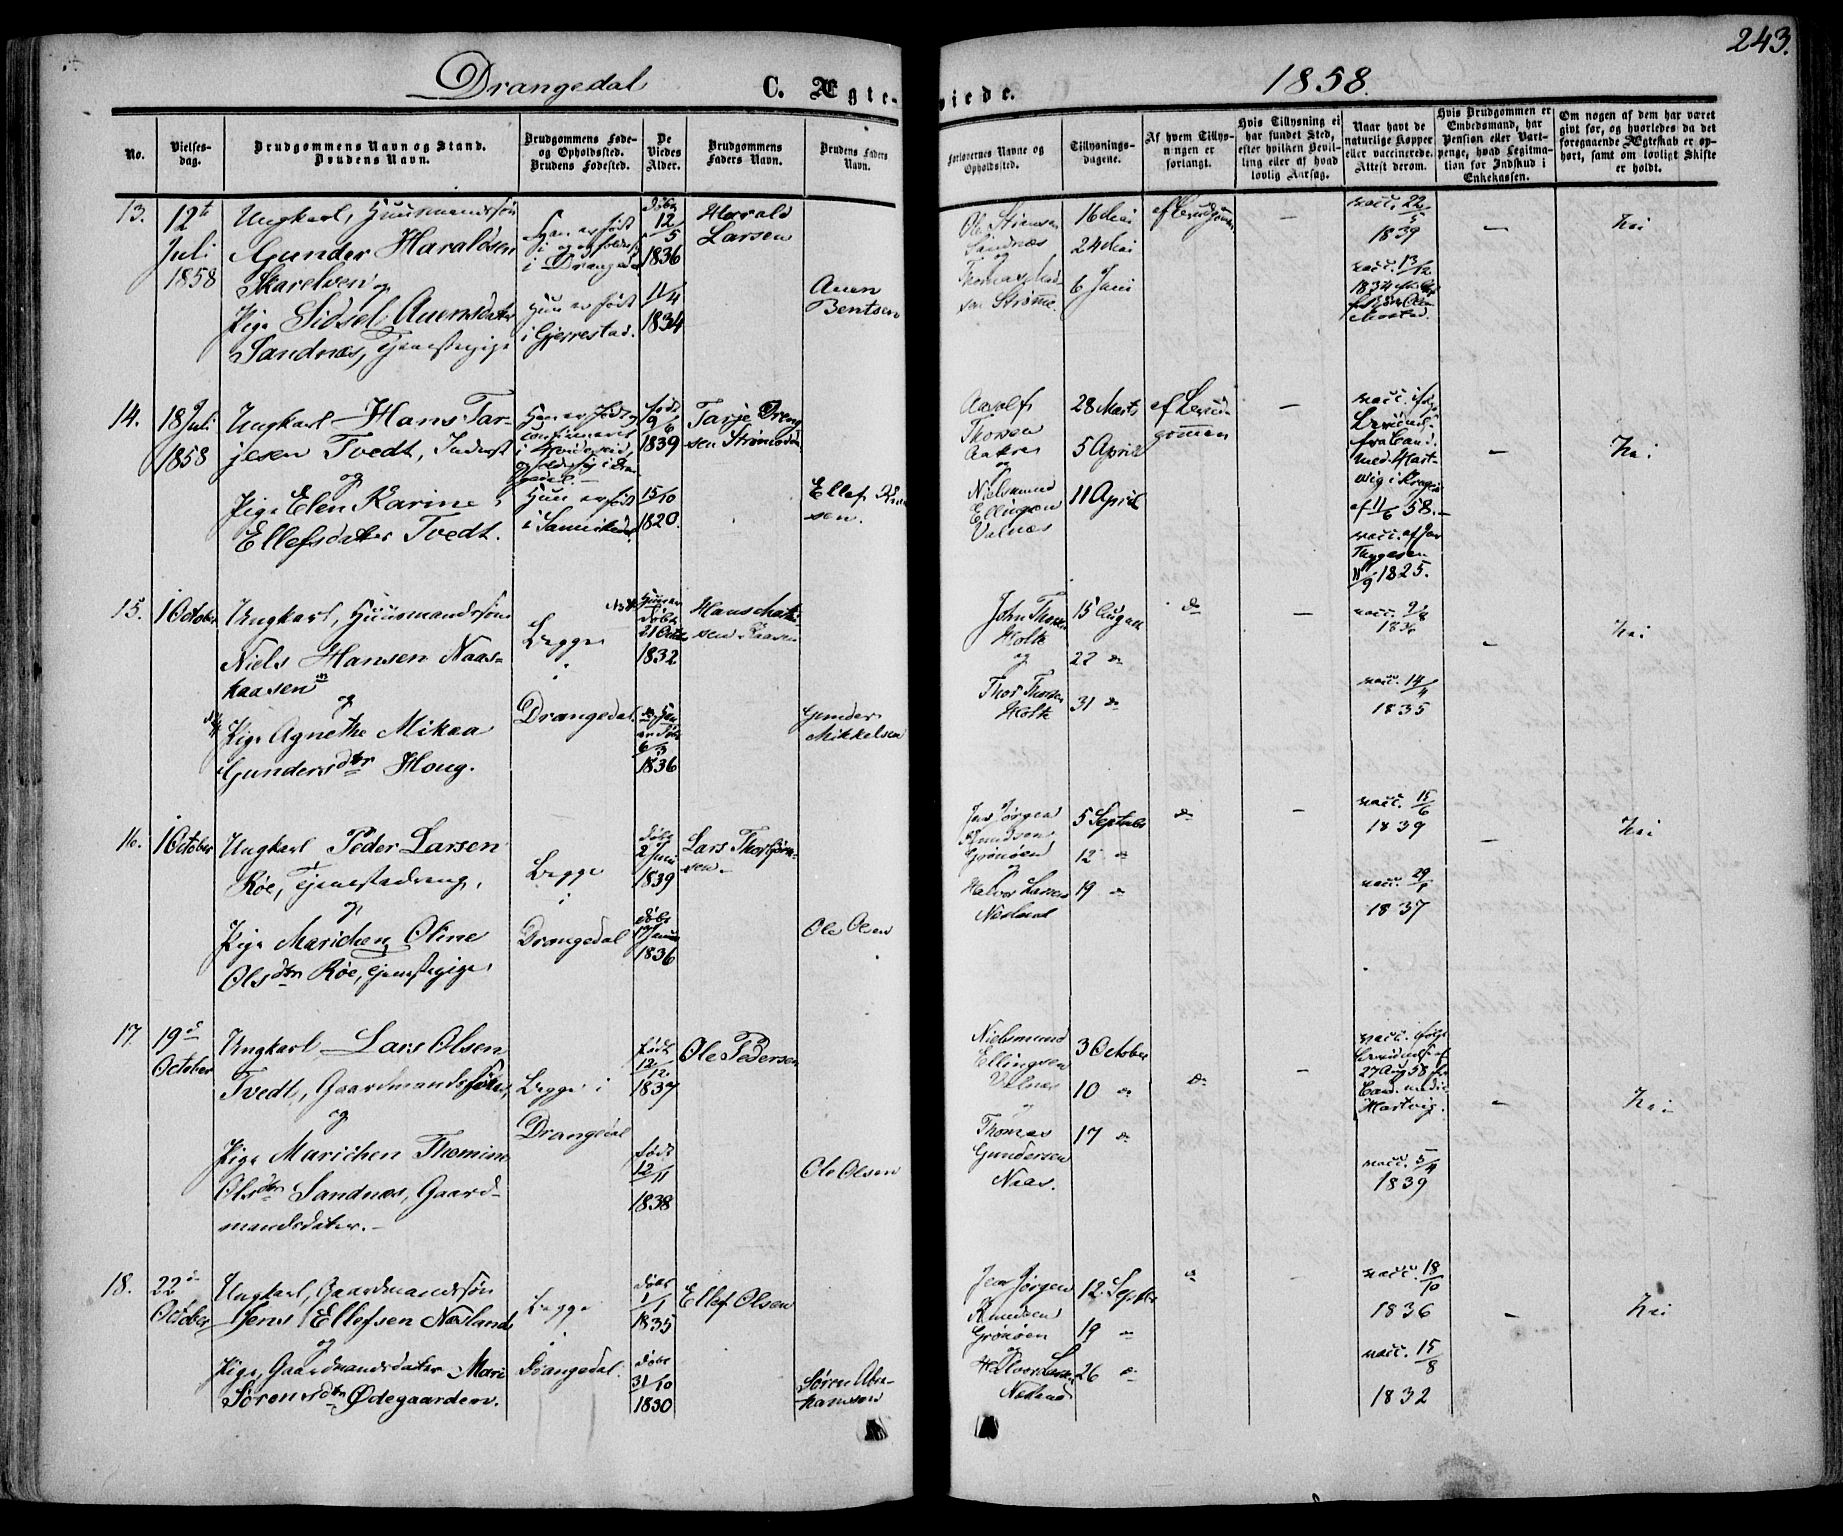 243.
Drangedal C. Ægte-
viede. 1858.
No.
Vielses-
dag.
Brudgommens Navn og Stand.
Brudens Navn.
Brudgommens Føde-
og Opholdssted.
Brudens Fødested.
De
Viedes
Alder.
Brudgommens
Faders Navn.
Brudens Faders
Navn.
Forlovernes Navne og
Opholdssted.
Tillysnings-
dagene.
Af hvem Tillys-
ningen er
forlangt.
Hvis Tillysning ei
har fundet Sted,
efter hvilken Bevil-
ling eller af hvad
lovlig Aarsag.
Naar havt de
naturlige Kopper
eller vaccinerede.
Attest derom.
Hvis Brudgommen er
Embedsmand, har
Pension eller Vart-
penge, hvad Legitima-
tion for Indskud i
Enkekassen.
Om nogen af dem har været
givt før, og hvorledes da det
foregaaende Ægteskab er op-
hørt, samt om lovligt Skifte
er holdt.
13.
12te
Juli
1858
Ungkarl, Huusmandssøn
Gunder Haraldsen
og
Pige Sidsel Auensdatter
Sandnæs, Tjenestepige
Han er født
i og opholder sig
i Drangedal
Hun er født
i Gjerrestad.
Døbt
12/5
1836
11/4
1834
Harald
Larsen
Auen
Bentsen
Sandnæs
og
16 Mai
24 Mai
6 Juni
–
vacc. 22/5
1839
vacc. 13/12
1834
–
Nei
14.
18 Juli
1858
Ungkarl Hans Tar-
jesen Tvedt, Inderst
og
Pige Elen Karine
Ellefsdatter Tvedt.
Han er født og
confirmeret
Hun er født
i Sannikedal
født
9/6
1839
15/10
1820.
Tarje
sen
Ellef
sen.
Aavolf
Thorsen
Aakre
og
Nielsmund
Ellingsen
Valnæs
28 Marts
5 April
11 April
af Brud-
gommen
–
vacc. ifølge
fra Cand.
med. Hart-
vig i Kragerø
af 11/6 58.–
vacc. af
Thygesen
11/9 1825.
–
Nei
15.
1 October
Ungkarl, Huusmandssøn
Niels Hansen Naas-
kaasen
og
Pige Agnethe Mikaa
Gundersdtr Houg.
Begge
i
Drangedal.
døbt
21 Octbr
1832
6/3
1836
Hans
Gunder
Mikkelsen
John Thorsen
Holte
og
Thor Thorsen
Holte
15 August
22 do
31 do
do
–
vacc. 9/8
vacc. 14/4
1835
–
Nei
16.
1 October
Ungkarl Peder Larsen
Røe, Tjenestedreng,
og
Pige Marichen Oline
Olsdtr Røe, tjenestepige,
Begge
i
Drangedal
Døbt
2 Juni
1839
døbt
1836
Lars Thorbjørn-
sen.
Ole Olsen
Jens Jørgen
Knudsen
Grønøen
og
Halvor Larsen
Næsland
5 Septbr
12 do
19 do
do
–
vacc. 15/6
1839
vacc. 29/1
1837
–
Nei
17.
19de
October
Ungkarl Lars Olsen
Tvedt, Gaardmandssøn,
og
Pige Marichen Thomine
Olsdtr Sandnæs, Gaard-
mandsdatter.–
Begge i
Drangedal
født
12/12
1837
født
12/11
1838
Ole Pedersen
Ole Olsen
Nielsmund
Ellingsen
Valnæs
og
Thomas
Gundersen
Naas.
3 October
10 do
17 do
do
–
vacc. ifølge
27 Aug 58 fra
Cand. medic
Hartvig.
vacc. 5/4
1839
–
Nei
18.
22de
October
Ungkarl, Gaardmandssøn
Jens Ellefsen Næsland
og
Pige, Gaardmandsdatter Mari
Sørensdtr Ødegaarden.
Begge
i
Drangedal.
døbt
1/1
1835
døbt
31/10
1830
Ellef Olsen
Søren Abra-
hamsen
Jens Jørgen
Knudsen
Grønøen
og
Halvor Larsen
Næsland
12. Septbr
19 do
26 do
do
vacc. 18/10
1836
vacc. 15/8
1832
–
Nei